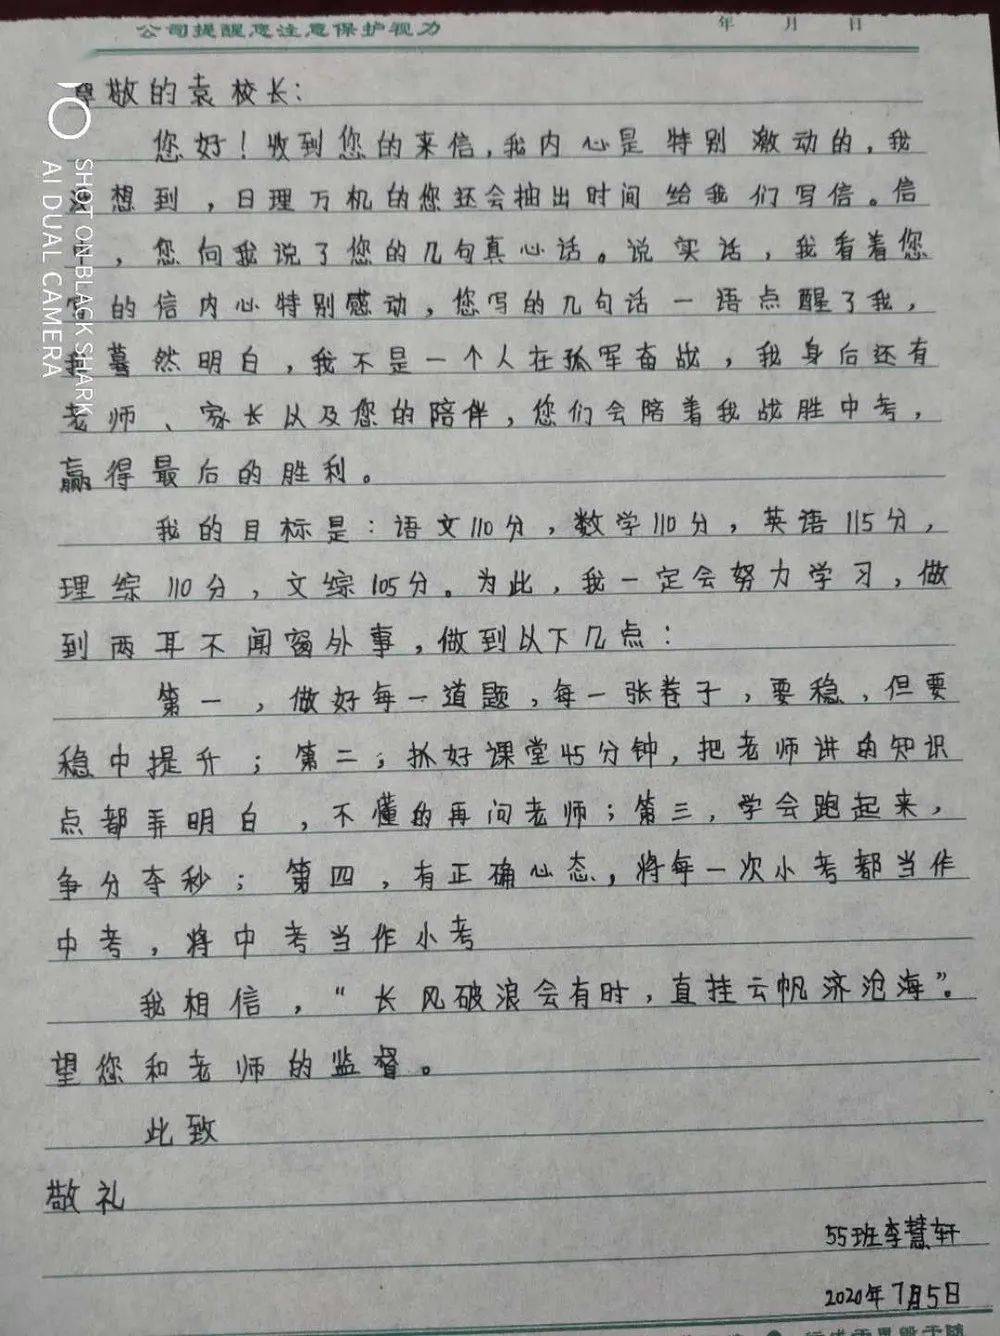 公司提醒您注意保护视力
年 月 日
尊敬的袁校长:
您好!收到您的来信,我内心是特别激动的,我
没想到,日理万机的您还会抽出时间给我们写信。信
中,您向我说了您的几句真心话。说实话,我看着您
写的信内心特别感动,您写的几句话一语点醒了我,
我蓦然明白,我不是一个人在孤军奋战,我身后还有
老师、家长以及您的陪伴,您们会陪着我战胜中考,
赢得最后的胜利。
我的目标是:语文110分,数学110分,英语115分,
理综110分,文综105分。为此,我一定会努力学习,做
到两耳不闻窗外事,做到以下几点:
第一,做好每一道题,每一张卷子,要稳,但要
稳中提升;第二;抓好课堂45分钟,把老师讲的知识
点都弄明白,不懂的再问老师;第三,学会跑起来,
争分夺秒;第四,有正确心态,将每一次小考都当作
中考,将中考当作小考
我相信,“长风破浪会有时,直挂云帆济沧海”。
望您和老师的监督。
此致
敬礼
55班李慧轩
2020年7月5日
SHOT ON BLACK SHARK
AI DUAL CAMERA